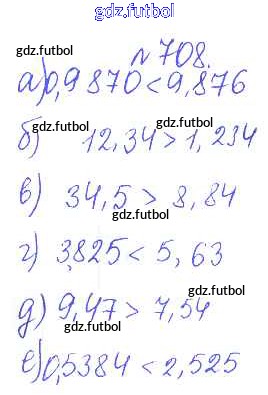 gdz.futbol
gdz.futbol
№ 708.
а) 0,9870 < 9,876
gdz.futbol
gdz.futbol
б) 12,34 > 1,234
в) 34,5 > 8,84
gdz.futbol
г) 3,825 < 5,63
gdz.futbol
д) 9,47 > 7,54
gdz.futbol
е) 0,5384 < 2,525
gdz.futbol